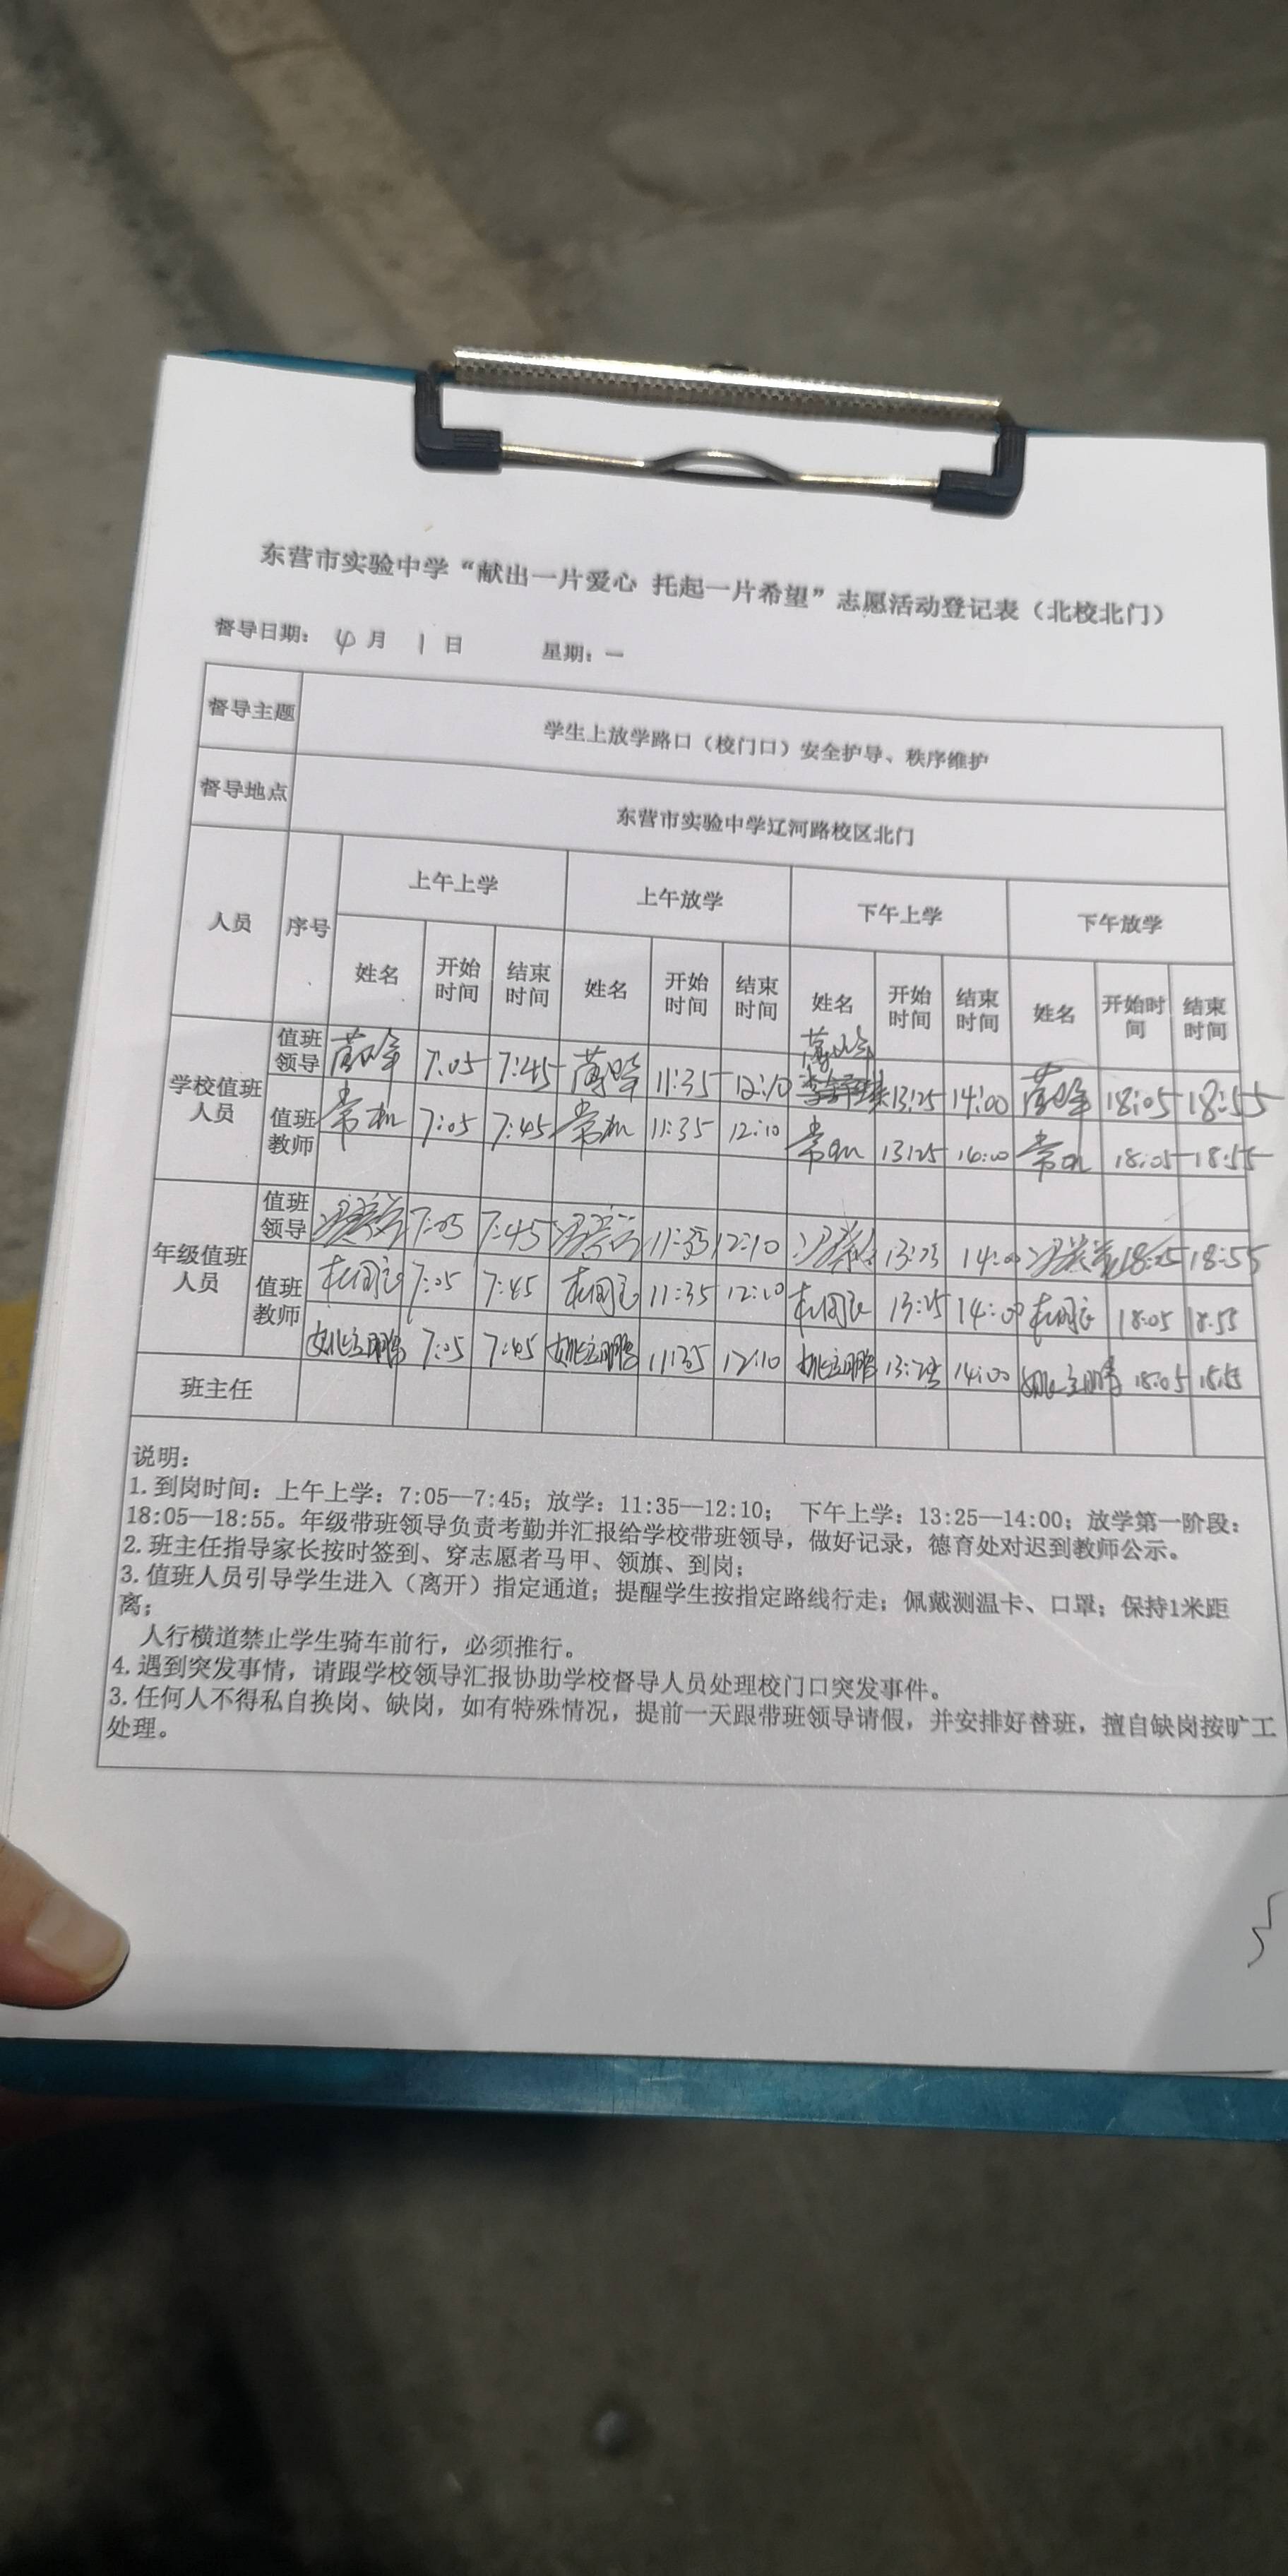 东营市实验中学“献出一片爱心 托起一片希望”志愿活动登记表（北校北门）
督导日期： 4月 1日 星期：一
督导主题 学生上放学路口（校门口）安全护导、秩序维护
督导地点 东营市实验中学辽河路校区北门
人员 序号 上午上学 上午放学 下午上学 下午放学
姓名 开始时间 结束时间 姓名 开始时间 结束时间 姓名 开始时间 结束时间 姓名 开始时间 结束时间
学校值班人员 值班领导 7:05 7:45 11:35 12:10 13:25 14:00 18:05 18:55
值班教师 7:05 7:45 11:35 12:10 13:25 14:00 18:05 18:55
年级值班人员 值班领导 7:05 7:45 11:35 12:10 14:00 18:55
值班教师 7:05 7:45 11:35 12:10 13:25 14:00 18:05 18:55
姚立鹏 7:05 7:45 姚立鹏 11:35 12:10 姚立鹏 14:00 姚立鹏 18:05
班主任
说明：
1. 到岗时间：上午上学：7:05—7:45；放学：11:35—12:10； 下午上学：13:25—14:00；放学第一阶段：
18:05—18:55。年级带班领导负责考勤并汇报给学校带班领导，做好记录，德育处对迟到教师公示。
2. 班主任指导家长按时签到、穿志愿者马甲、领旗、到岗；
3. 值班人员引导学生进入（离开）指定通道；提醒学生按指定路线行走；佩戴测温卡、口罩；保持1米距
离；
人行横道禁止学生骑车前行，必须推行。
4. 遇到突发事情，请跟学校领导汇报协助学校督导人员处理校门口突发事件。
3. 任何人不得私自换岗、缺岗，如有特殊情况，提前一天跟带班领导请假，并安排好替班，擅自缺岗按旷工
处理。